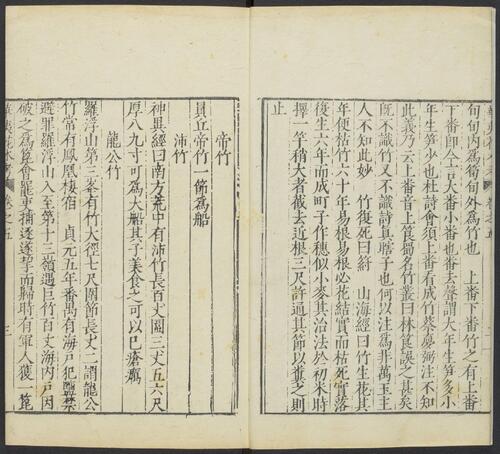 旬旬內爲筍旬外爲竹也　上番下番竹之有上番
下番卽今言大番小番也番去聲謂大年生筍多小
年生筍少也杜詩會須上番看成竹蔡夢弼注不知
此義乃云上番音上筤蜀名竹叢曰林筤誤之甚矣
旣不識竹又不識詩眞瞎子也何以注爲非萬玉主
人不知此妙　竹復死曰䈙　山海經曰竹生花其
年便枯竹六十年易根易根必花結實而枯死實落
復生六年而成町子作穗似小麥其治法於初米時
擇一竿稍大者截去近根三尺許通其節以糞之則
止
帝竹
員丘帝竹一節爲船
沛竹
神異經曰南方荒中有沛竹長百丈圍三丈五六尺
厚八九寸可爲大船其子美食之可以已瘡癘
龍公竹
羅浮山第三峯有竹大徑七尺圍節長丈二謂龍公
竹常有鳳凰棲宿　貞元五年番禺有海戶犯鹽禁
避罪羅浮山入至第十三嶺遇巨竹百丈海內戶因
破之爲篾會罷吏捕逐遂挈而歸時有軍人獲一篾
卷之五
三